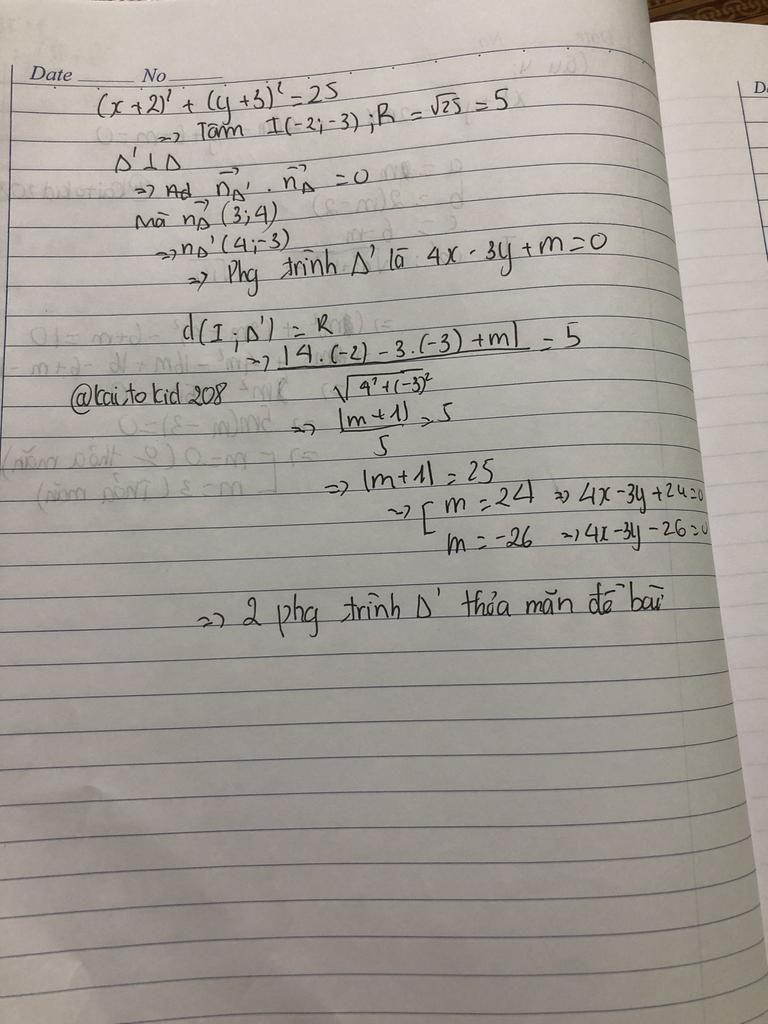 Date No
(x+2)² + (y+3)² = 25
=> Tâm I(-2;-3); R = √25 = 5
Δ' ⊥ Δ
=> Ad n⃗Δ' . n⃗Δ = 0
Mà n⃗Δ (3;4)
=> nΔ' (4;-3)
=> Phg trình Δ' là 4x - 3y + m = 0
d(I;Δ') = R
=> |4.(-2) - 3.(-3) + m| / √4² + (-3)² = 5
@kaitokid208
=> |m+1| / 5 = 5
=> |m+1| = 25
=> [ m = 24 => 4x-3y+24=0
m = -26 => 4x-3y-26=0
=> 2 phg trình Δ' thỏa mãn đề bài